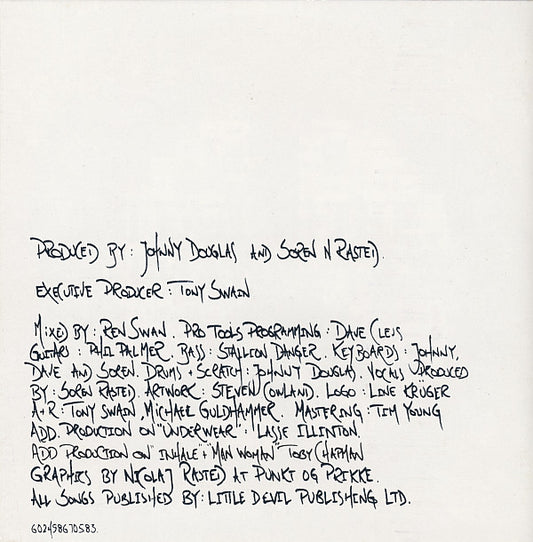 PRODUCED BY: JOHNNY DOUGLAS AND SOREN N RASTED.
EXECUTIVE PRODUCER: TONY SWAIN
MIXED BY: REN SWAN. PRO TOOLS PROGRAMMING: DAVE CLEIS
GUITARS: PHIL PALMER. BASS: STALLION DANGER. KEYBOARDS: JOHNNY,
DAVE AND SOREN. DRUMS + SCRATCH: JOHNNY DOUGLAS. VOCALS PRODUCED
BY: SOREN RASTED. ARTWORK: STEVEN COWLAND. LOGO: LINE KRÜGER
A+R: TONY SWAIN, MICHAEL GULDHAMMER. MASTERING: TIM YOUNG
ADD. PRODUCTION ON "UNDERWEAR": LASSE ILLINTON.
ADD PRODUCTION ON "INHALE + MAN WOMAN" TOBY CHAPMAN
GRAPHICS BY NICOLAJ RASTED AT PUNKT OG PRIKKE.
ALL SONGS PUBLISHED BY: LITTLE DEVIL PUBLISHING LTD.
602498670583.